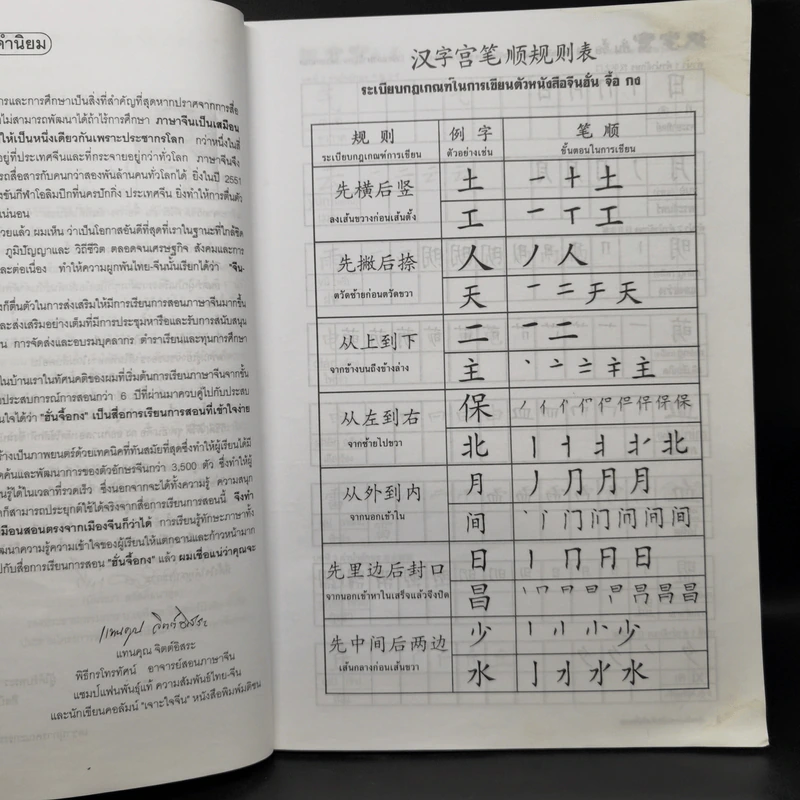 คำนิยม
และการศึกษาเป็นสิ่งที่สำคัญที่สุดหากปราศจากการสื่อ
ไม่สามารถพัฒนาได้ถ้าไร้การศึกษา ภาษาจีนเป็นเสมือน
ให้เป็นหนึ่งเดียวกันเพราะประชากรโลก กว่าหนึ่งในสี่
อยู่ที่ประเทศจีนและที่กระจายอยู่ทั่วโลก ภาษาจีนจึง
สื่อสารกับคนกว่าสองพันล้านคนทั่วโลกได้ ยิ่งในปี 2551
กีฬาโอลิมปิกที่นครปักกิ่ง ประเทศจีน ยิ่งทำให้การตื่นตัว
แน่นอน
แล้ว ผมเห็น ว่าเป็นโอกาสอันดีที่สุดที่เราในฐานะที่ใกล้ชิด
ภูมิปัญญาและ วิถีชีวิต ตลอดจนเศรษฐกิจ สังคมและการ
และต่อเนื่อง ทำให้ความผูกพันไทย-จีนนั้นเรียกได้ว่า "จีน-
ก็ตื่นตัวในการส่งเสริมให้มีการเรียนการสอนภาษาจีนมากขึ้น
และส่งเสริมอย่างเต็มที่มีการประชุมหารือและรับการสนับสนุน
การจัดส่งและอบรมบุคลากร ตำราเรียนและทุนการศึกษา
ในบ้านเราในทัศนคติของผมที่เริ่มต้นการเรียนภาษาจีนจากขั้น
ประสบการณ์การสอนกว่า 6 ปีที่ผ่านมาควบคู่ไปกับประสบ
ได้ว่า "ฮั่นจื้อกง" เป็นสื่อการเรียนการสอนที่เข้าใจง่าย
เป็นภาพยนตร์ด้วยเทคนิคที่ทันสมัยที่สุดซึ่งทำให้ผู้เรียนได้มี
และพัฒนาการของตัวอักษรจีนกว่า 3,500 ตัว ซึ่งทำให้ผู้
รู้ได้ในเวลาที่รวดเร็ว ซึ่งนอกจากจะได้ทั้งความรู้ ความสนุก
ก็สามารถประยุกต์ใช้ได้จริงจากสื่อการเรียนการสอนนี้ จึงทำ
เหมือนสอนตรงจากเมืองจีนก็ว่าได้ การเรียนรู้ทักษะภาษาทั้ง
ความรู้ความเข้าใจของผู้เรียนให้แตกฉานและก้าวหน้ามาก
กับสื่อการเรียนการสอน "ฮั่นจื้อกง" แล้ว ผมเชื่อแน่ว่าคุณจะ
แทนคุณ จิตต์อิสระ
แทนคุณ จิตต์อิสระ
พิธีกรโทรทัศน์ อาจารย์สอนภาษาจีน
แชมป์แฟนพันธุ์แท้ ความสัมพันธ์ไทย-จีน
และนักเขียนคอลัมน์ "เจาะใจจีน" หนังสือพิมพ์มติชน
汉字宫笔顺规则表
ระเบียบกฎเกณฑ์ในการเขียนตัวหนังสือจีนฮั่น จื้อ กง
规 则 例 字 笔 顺
ระเบียบกฎเกณฑ์การเขียน ตัวอย่างเช่น ขั้นตอนในการเขียน
先横后竖
ลงเส้นขวางก่อนเส้นตั้ง
土 一 十 土
工 一 丅 工
先撇后捺
ตวัดซ้ายก่อนตวัดขวา
人 丿 人
天 一 二 チ 天
从上到下
จากข้างบนถึงข้างล่าง
二 一 二
主 丶 亠 主
从左到右
จากซ้ายไปขวา
保 丿 亻 保
北 丨 北
从外到内
จากนอกเข้าใน
月 丿 冂 月 月
间 丶 丨 门 问 间 间
先里边后封口
จากนอกเข้าหาในเสร็จแล้วจึงปิด
日 丨 冂 日
昌 丨 冂 日 昌
先中间后两边
เส้นกลางก่อนเส้นขวา
少 丨 小 少
水 亅 水